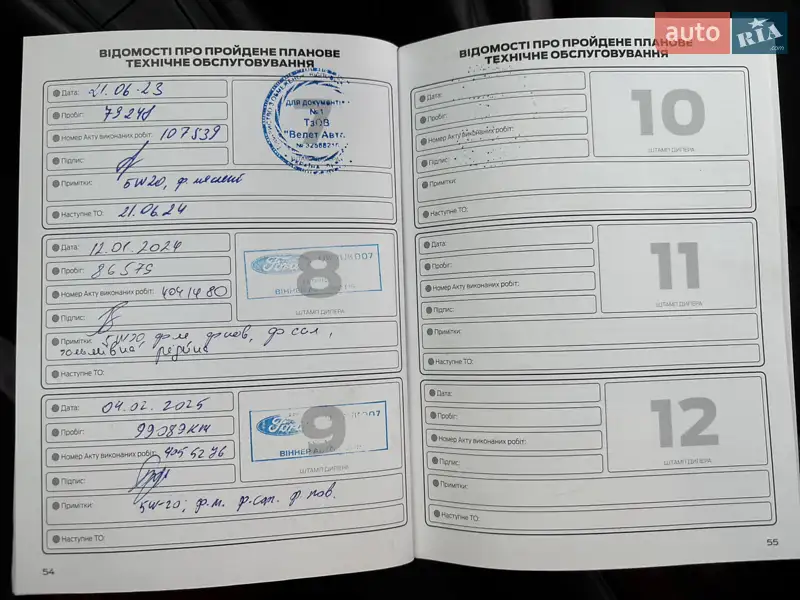 ВІДОМОСТІ ПРО ПРОЙДЕНЕ ПЛАНОВЕ
ТЕХНІЧНЕ ОБСЛУГОВУВАННЯ
Дата: 21.06.23
Пробіг: 79248
Номер Акту виконаних робіт: 107539
Підпис:
Примітки: 5W20, ф.
Наступне ТО: 21.06.24
Для документів
№1
ТзОВ
"Велет Авто"
Дата: 12.01.2024
Пробіг: 86575
Номер Акту виконаних робіт: 4041480
Підпис:
Примітки: 5W20, ф.м, ф пов, ф сал,
Наступне ТО:
8
Ford
ВІННЕР
ШТАМП ДИЛЕРА
Дата: 04.02.2025
Пробіг: 99089км
Номер Акту виконаних робіт: 4055276
Підпис:
Примітки: 5W-20; ф.м. ф.сал. ф пов.
Наступне ТО:
9
Ford
ВІННЕР
ШТАМП ДИЛЕРА
54
ВІДОМОСТІ ПРО ПРОЙДЕНЕ ПЛАНОВЕ
ТЕХНІЧНЕ ОБСЛУГОВУВАННЯ
Дата:
Пробіг:
Номер Акту виконаних робіт:
Підпис:
Примітки:
Наступне ТО:
10
ШТАМП ДИЛЕРА
Дата:
Пробіг:
Номер Акту виконаних робіт:
Підпис:
Примітки:
Наступне ТО:
11
ШТАМП ДИЛЕРА
Дата:
Пробіг:
Номер Акту виконаних робіт:
Підпис:
Примітки:
Наступне ТО:
12
ШТАМП ДИЛЕРА
55
auto RIA.com